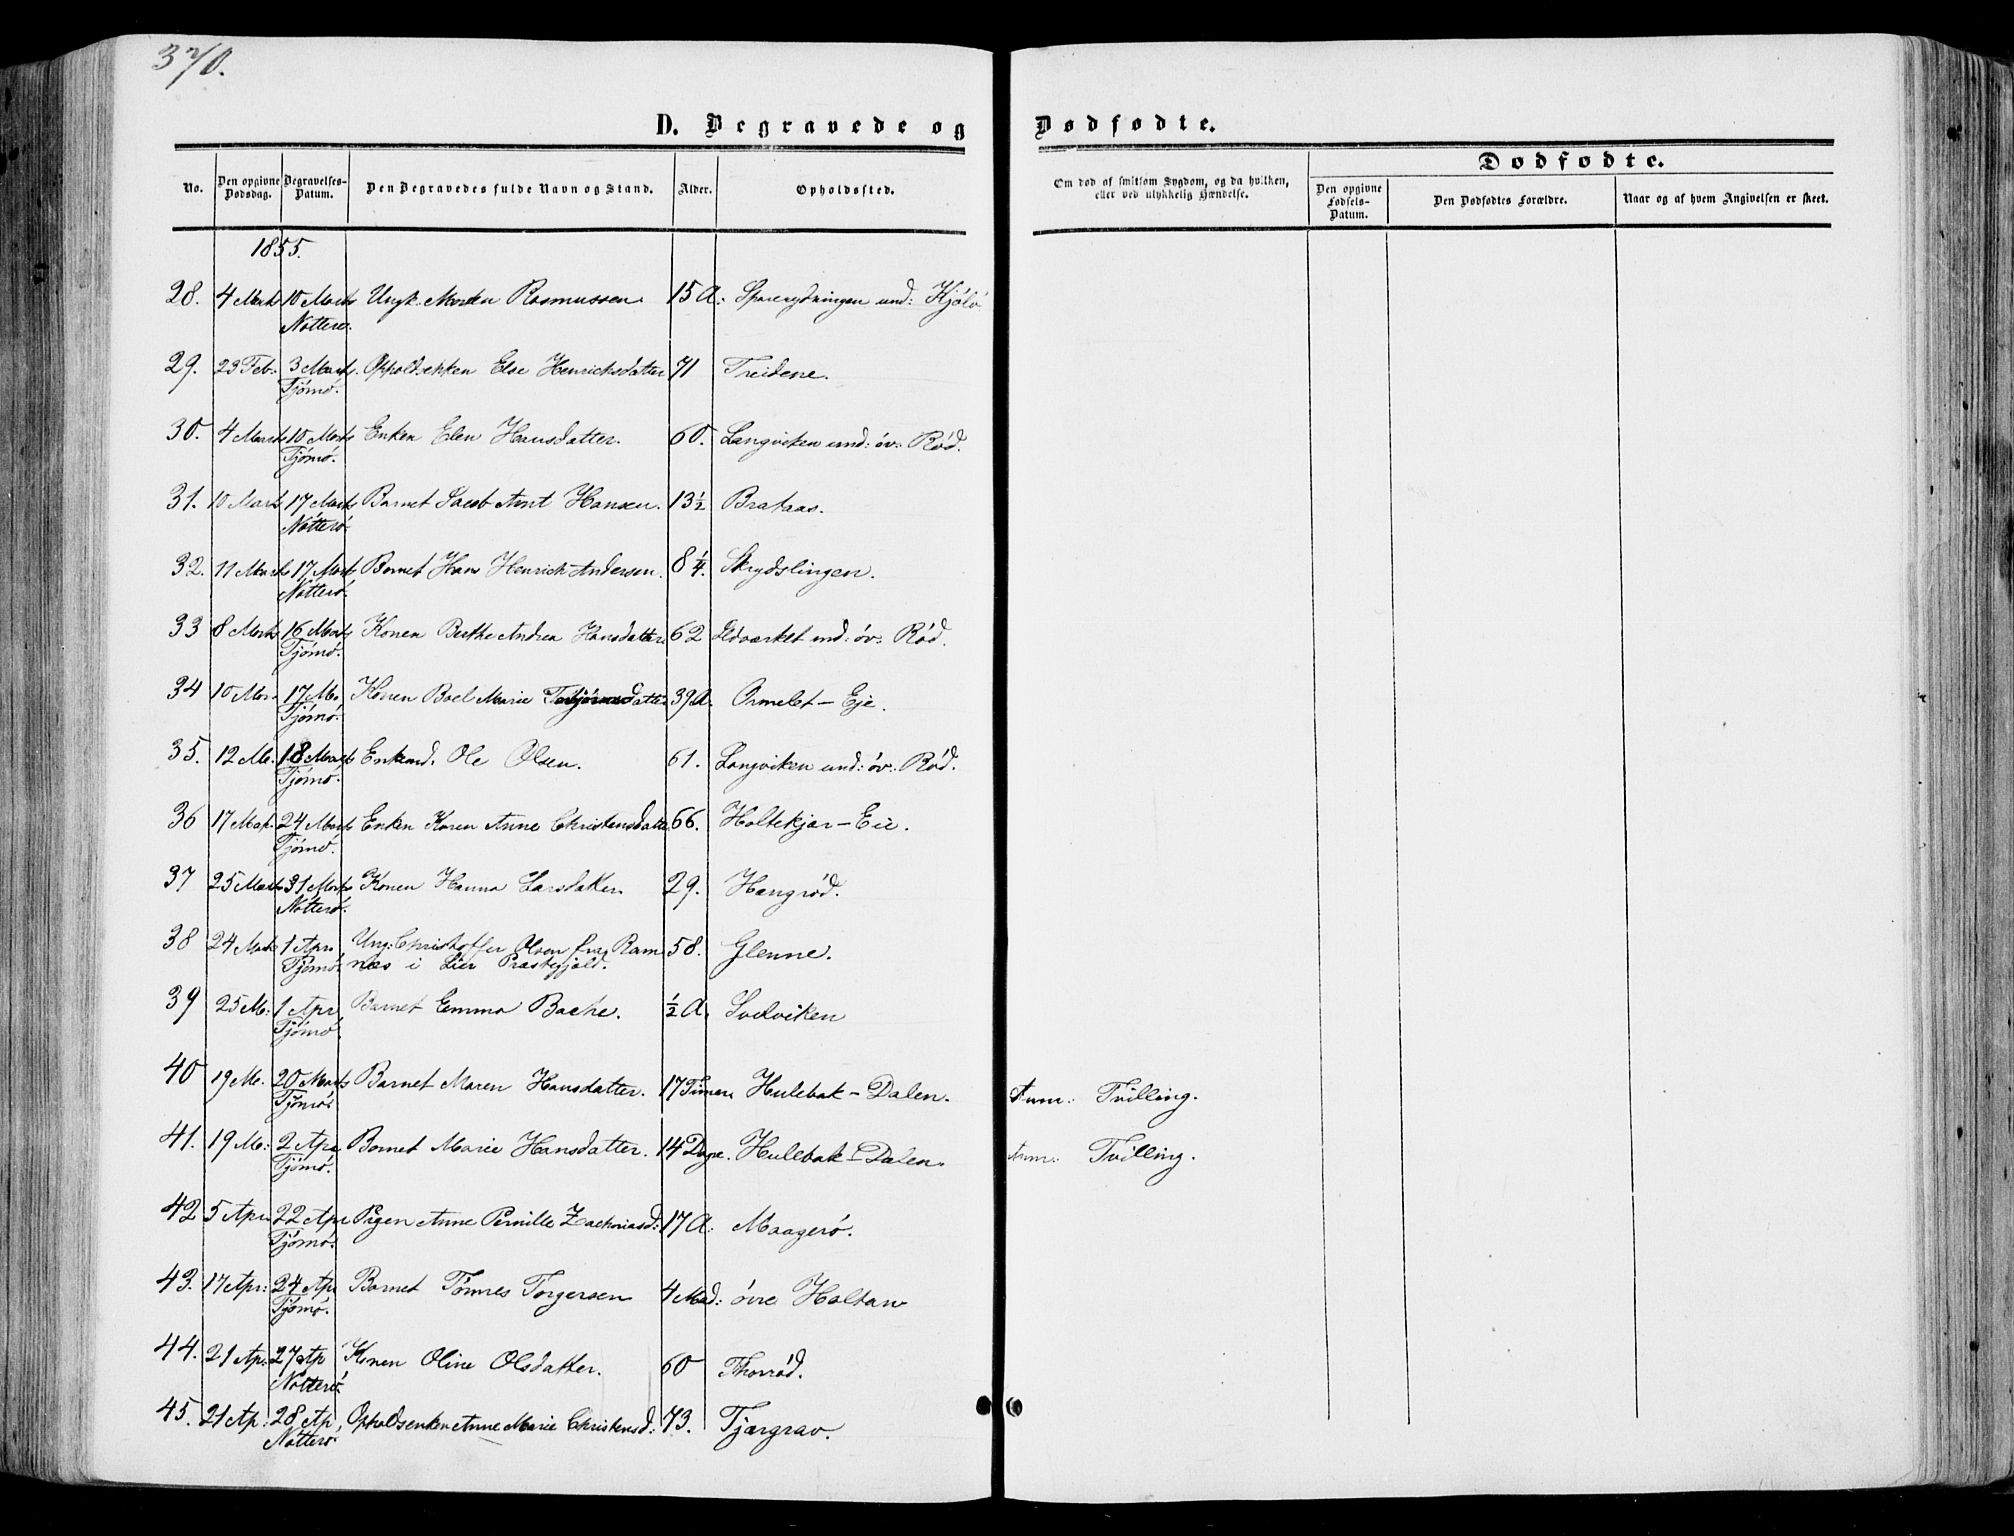 370.
D. Begravede og Dødfødte.
Dødfødte.
No. Den opgivne Dødsdag. Begravelses-Datum. Den Begravedes fulde Navn og Stand. Alder. Opholdssted. Om død af smitsom Sygdom, og da hvilken, eller ved ulykkelig Hændelse. Den opgivne Fødsels-Datum. Den Dødfødtes Forældre. Naar og af hvem Angivelsen er skeet.
1855.
28. 4 Marts 10 Marts Ungk. Morten Rasmussen. 15 A: und: Kjølø
Nøtterø.
29. 23 Feb. 3 Marts. Opholdsenken Else Henrichsdatter 71 Treidene.
Tjömö.
30. 4 Marts 10 Marts Enken Elen Hansdatter. 60. Langviken und: öv: Röd.
Tjömö.
31. 10 Marts 17 Marts Barnet Jacob Anut Hansen. 13½ Brataas.
Nötterö.
32. 11 Marts 17 Marts Barnet Hans Henrich Andersen. 8¼. Skrydslingen.
Nötterö.
33 8 Marts 16 Marts Konen Berthe Andrea Hansdatter 62 Udværket und: öv: Röd.
Tjömö.
34 10 Mar. 17 Ma. Konen Boel Marie Torbjörnsdatter 39 A. Ormelet - Eje.
Tjömö.
35. 12 M. 18 Marts Enkemd. Ole Olsen. 61. Langviken und: öv: Röd.
Tjömö.
36 17 Mar. 24 Marts Enken Karen Anne Christensdatter 66. Holtekjær - Eie.
Tjömö.
37 25 Marts 31 Marts Konen Hanna Larsdatter 29. Hangröd.
Nötterö.
38 24 Mart: 1 Apr. Ung: Christoffer Olsen fra Ram 58. Glenne.
Tjömö. næs i Lier Præstegjæld.
39 25 M: 1 Apr Barnet Emma Bache. ½ A. Svelviken
Tjömö.
40 19 M. 20 Marts Barnet Maren Hansdatter. 17 Timer Hulebak - Dalen. Anm: Tvilling.
Tjömö.
41. 19 M: 2 Apr Barnet Marie Hansdatter. 14 Dage. Hulebak - Dalen. Anm: Tvilling.
Tjömö.
42 5 Apr. 22 Apr Pigen Anne Pernille Zachariasd: 17 A: Maagerö.
Tjömö.
43. 17 Apr: 24 Apr Barnet Tönnes Torgersen 4 Mad: övre Holtan
Tjömö.
44. 21 Ap: 27 Ap Konen Oline Olsdatter. 60 Thoröd.
Nötterö.
45. 21 Ap: 28 Ap. Opholdsenken Anne Marie Christensd: 73. Tjærgrav.
Nötterö.